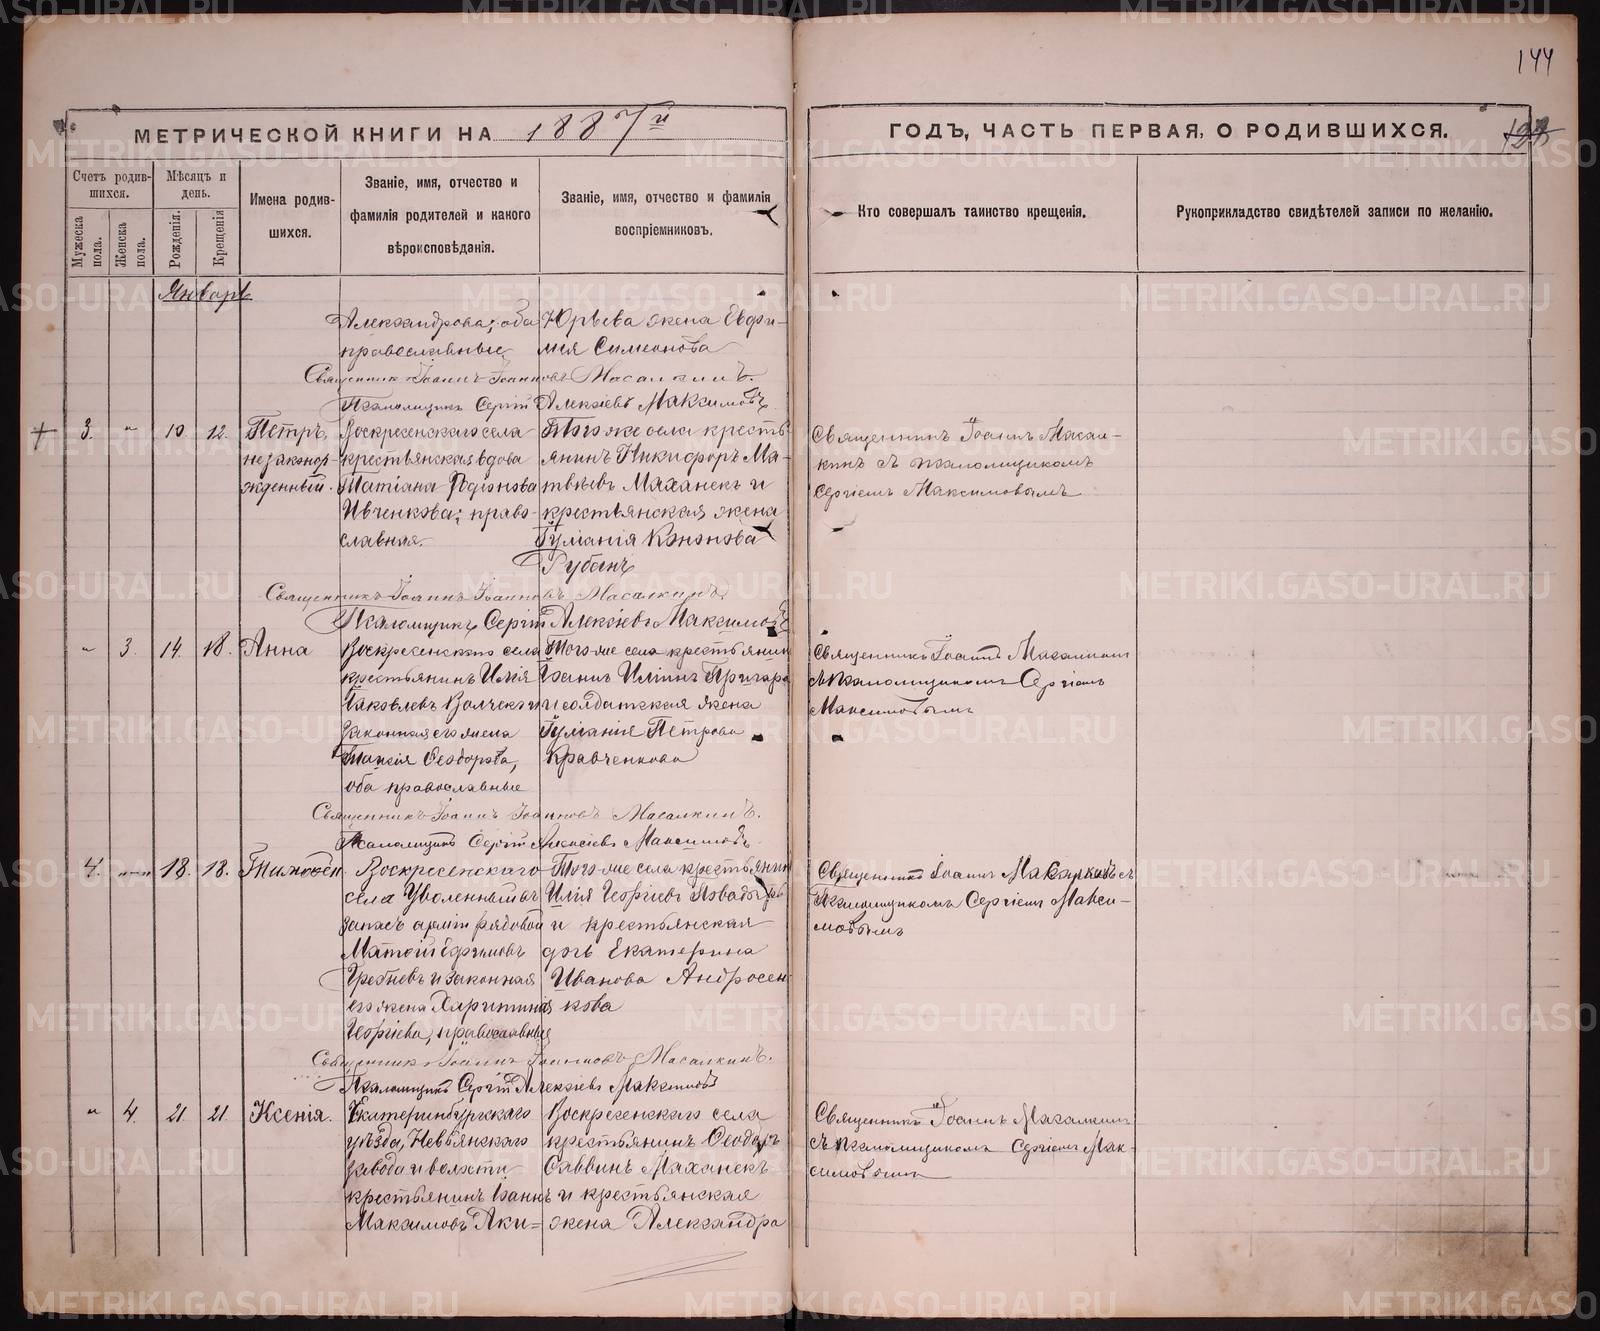 144
МЕТРИЧЕСКОЙ КНИГИ НА 1887й
ГОДЪ, ЧАСТЬ ПЕРВАЯ, О РОДИВШИХСЯ.
Счетъ родив-
шихся.
Мужеска
пола.
Женска
пола.
Мѣсяцъ и
день.
Рожденія.
Крещенія
Имена родив-
шихся.
Званіе, имя, отчество и
фамилія родителей и какого
вѣроисповѣданія.
Званіе, имя, отчество и фамилія
воспріемниковъ.
Кто совершалъ таинство крещенія.
Рукоприкладство свидѣтелей записи по желанію.
Январь
Александрова; оба
православные
Юрьева жена Евфи-
мия Симеонова
Священникъ Іоаннъ Іоанновъ Масалкинъ.
Псаломщикъ Сергій Алексіевъ Максимовъ
3.
"
10
12.
Петръ,
незаконоро-
жденный.
Воскресенскаго села
крестьянская вдова
Татіана Родіонова
Ивченкова; право-
славная.
Того же села кресть-
янинъ Никифоръ Ма-
твѣевъ Маханекъ и
крестьянская жена
Іуліанія Кононова
Рубанъ
Священникъ Іоаннъ Масал-
кинъ съ псаломщикомъ
Сергіемъ Максимовымъ
Священникъ Іоаннъ Іоанновъ Масалкинъ.
Псаломщикъ Сергій Алексіевъ Максимовъ
"
3.
14.
18.
Анна
Воскресенскаго села
крестьянинъ Илія
Іаковлевъ Волчекъ и
законная его жена
Таисія Ѳеодорова,
оба православные
Того же села крестьянинъ
Іоаннъ Иліинъ Пригара
и солдатская жена
Іуліанія Петрова
Кравченкова
Священникъ Іоаннъ Масалкинъ
съ псаломщикомъ Сергіемъ
Максимовымъ
Священникъ Іоаннъ Іоанновъ Масалкинъ.
Псаломщикъ Сергій Алексіевъ Максимовъ
4.
18.
18.
Тимоѳей
Воскресенскаго
села уволенный въ
запасъ арміи рядовой
Матѳій Ефимовъ
Гребневъ и законная
его жена Харитинія
Георгіева, православные
Того же села крестьянинъ
Илія Георгіевъ
и крестьянская
дочь Екатерина
Иванова Андросен
кова
Священникъ Іоаннъ Масалкинъ съ
Псаломщикомъ Сергіемъ Макси-
мовымъ
Священникъ Іоаннъ Іоанновъ Масалкинъ.
Псаломщикъ Сергій Алексіевъ Максимовъ
"
4.
21.
21.
Ксенія.
Екатеринбургскаго
уѣзда, Невьянскаго
завода и волости
крестьянинъ Іоаннъ
Максимовъ Аки=
Воскресенскаго села
крестьянинъ Ѳеодоръ
Саввинъ Маханекъ
и крестьянская
жена Александра
Священникъ Іоаннъ Масалкинъ
съ псаломщикомъ Сергіемъ Мак-
симовымъ
METRIKI.GASO-URAL.RU